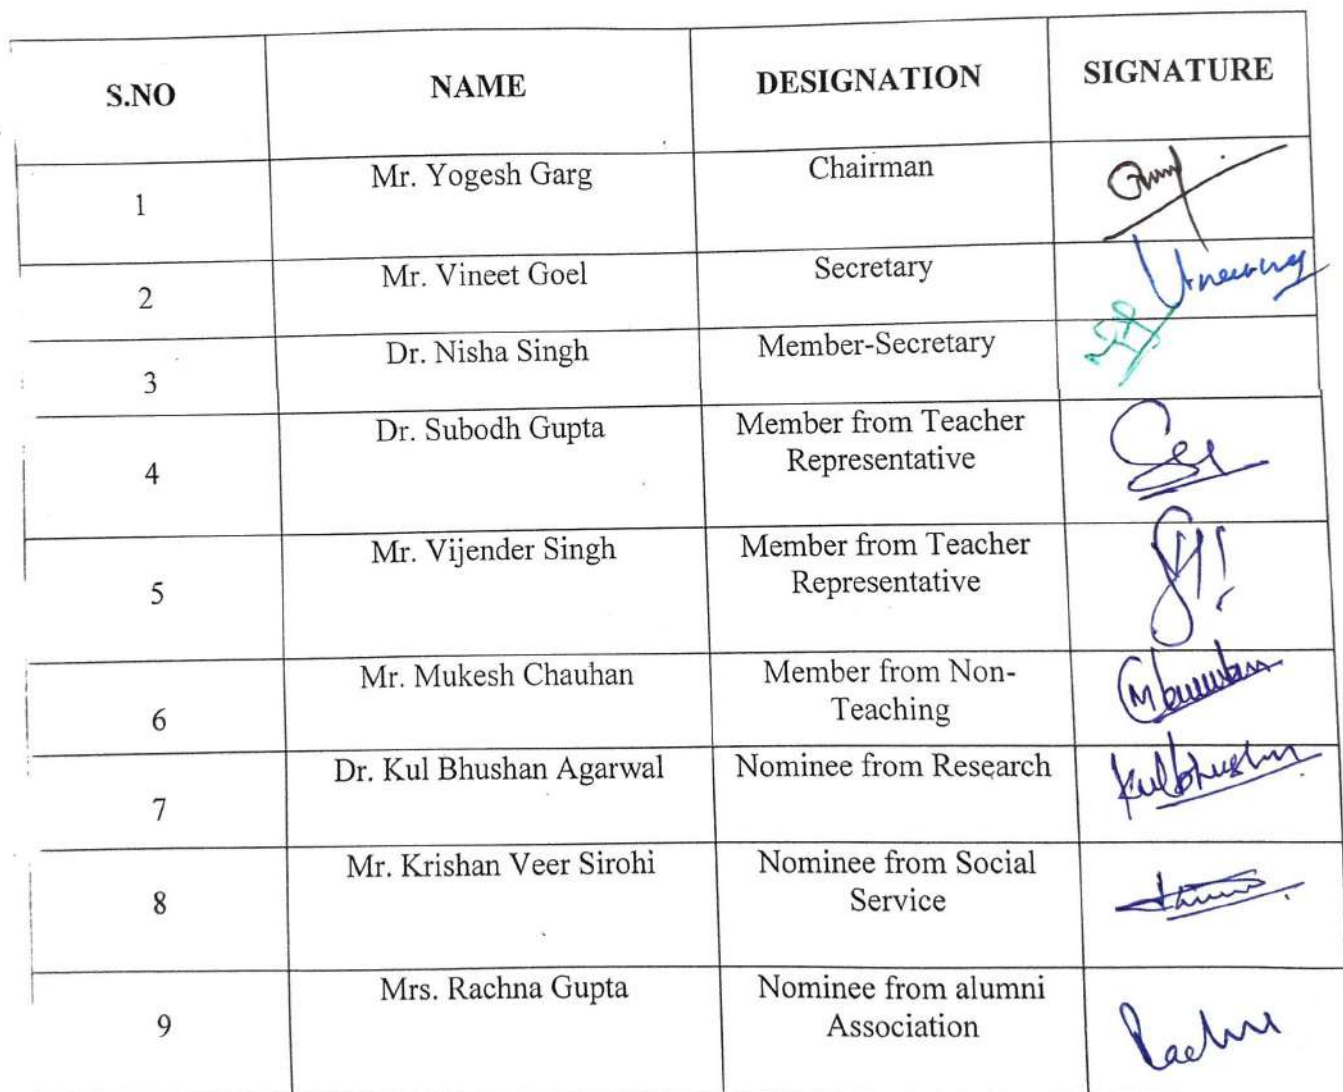 S.NO NAME DESIGNATION SIGNATURE
1 Mr. Yogesh Garg Chairman
2 Mr. Vineet Goel Secretary
3 Dr. Nisha Singh Member-Secretary
4 Dr. Subodh Gupta Member from Teacher
Representative
5 Mr. Vijender Singh Member from Teacher
Representative
6 Mr. Mukesh Chauhan Member from Non-
Teaching
7 Dr. Kul Bhushan Agarwal Nominee from Research Kulbhushan
8 Mr. Krishan Veer Sirohi Nominee from Social
Service
9 Mrs. Rachna Gupta Nominee from alumni
Association